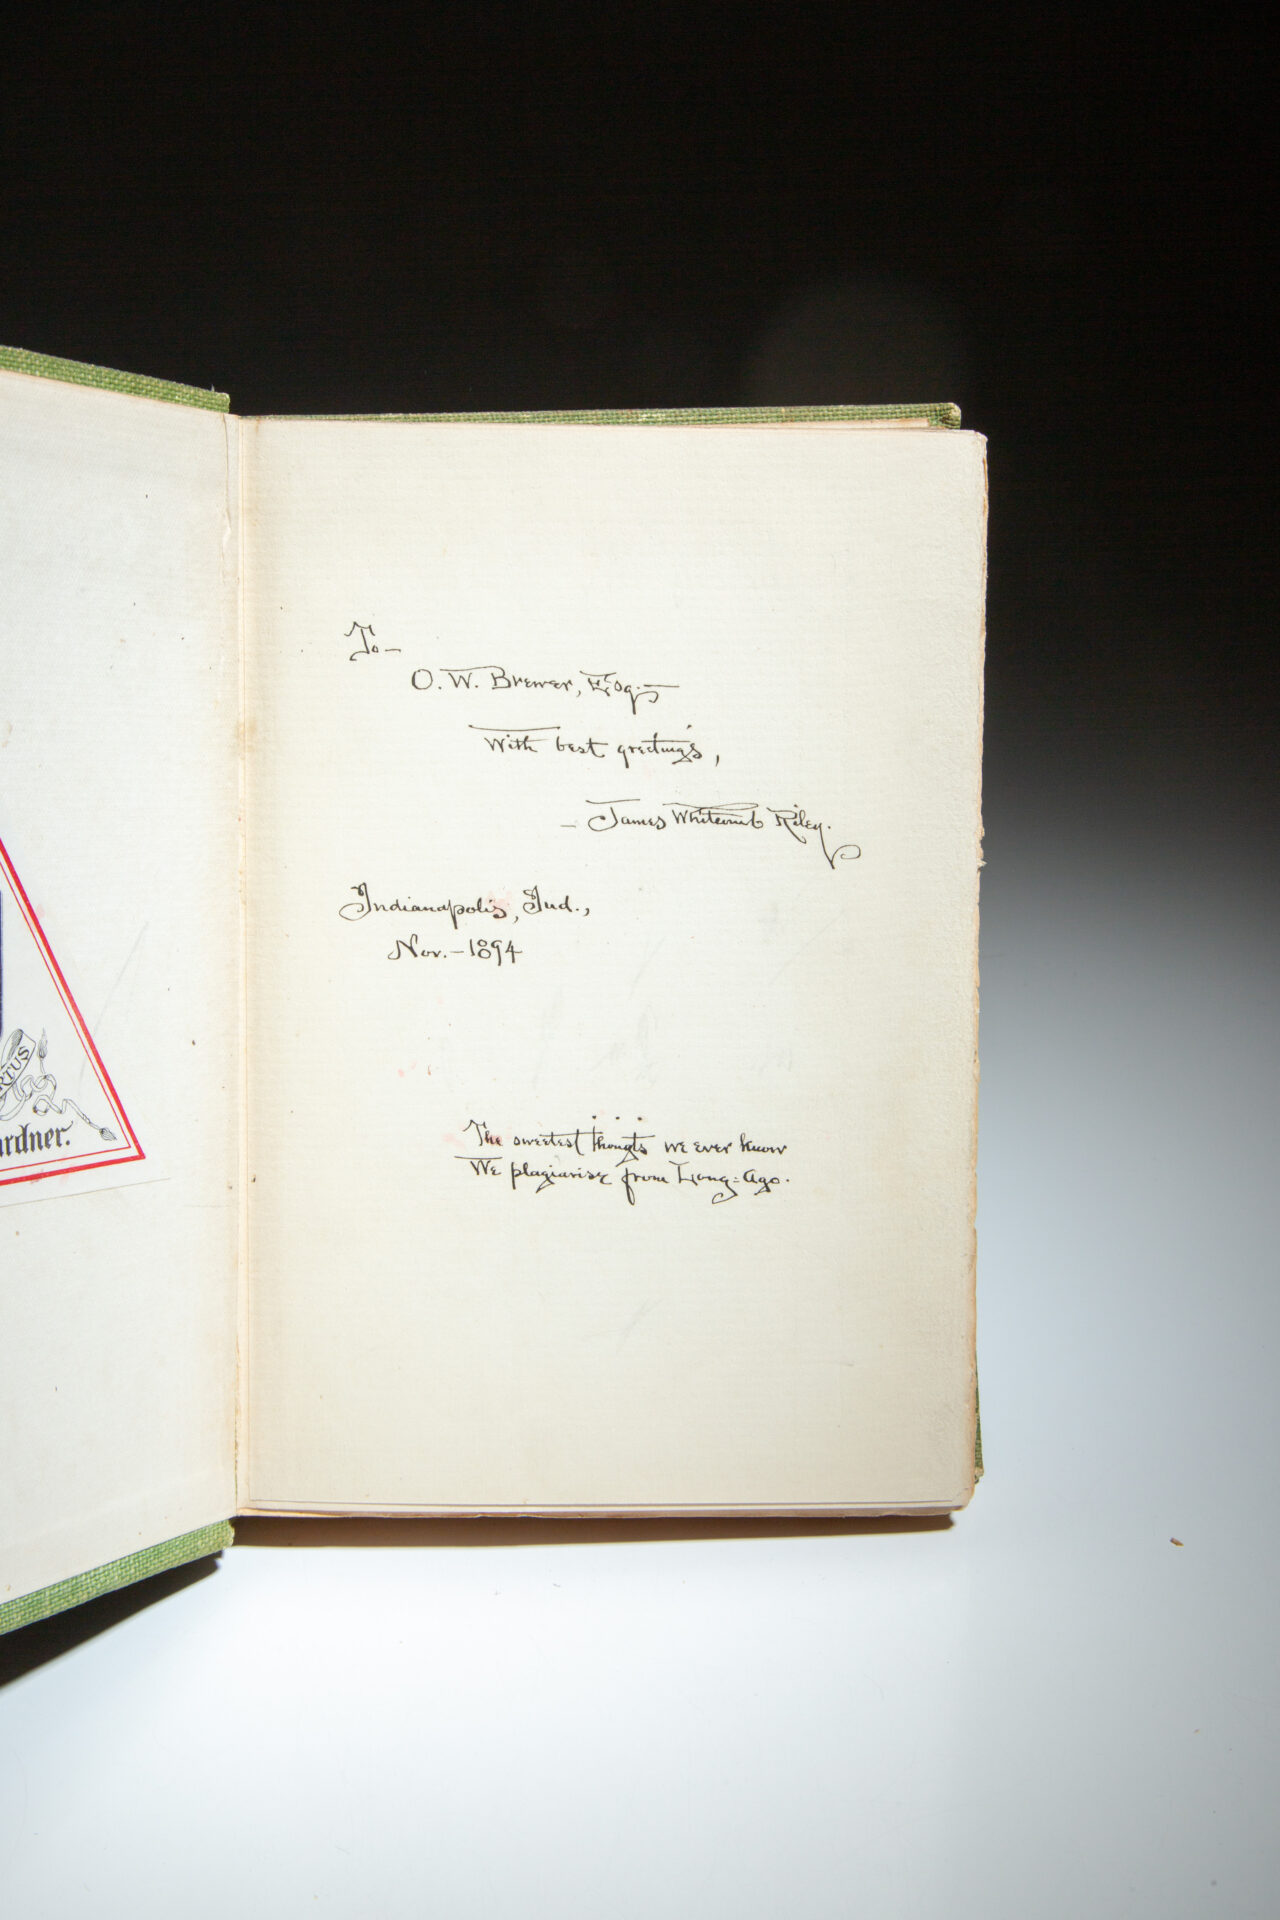 RTUS
ardner.
To—
O. W. Brewer, Esq.—
With best greetings,
— James Whitcomb Riley.
Indianapolis, Ind.,
Nov.—1894
The sweetest thougts we ever know
We plagiarise from Long=Ago.